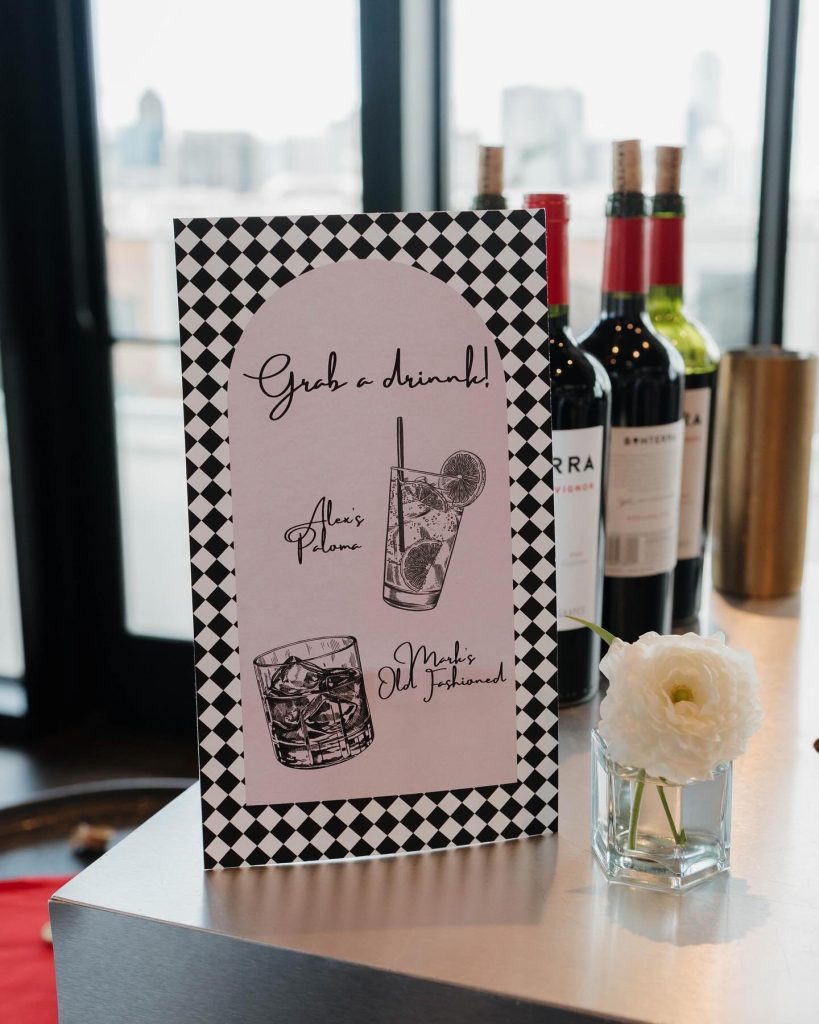 Grab a drinnk!
Alex's
Paloma
Mark's
Old Fashioned
RRA
VIGNON
BONTERRA
RA